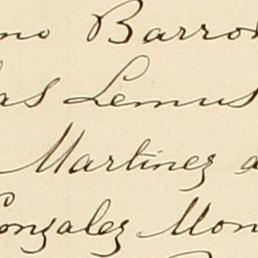 no Barro
as Lemus
Martinez a
Gonzalez Mon